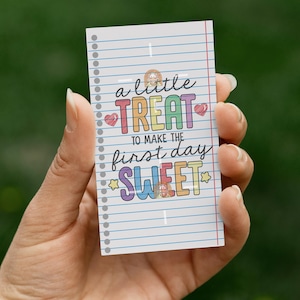 a little
TREAT
TO MAKE THE
first day
SWEET